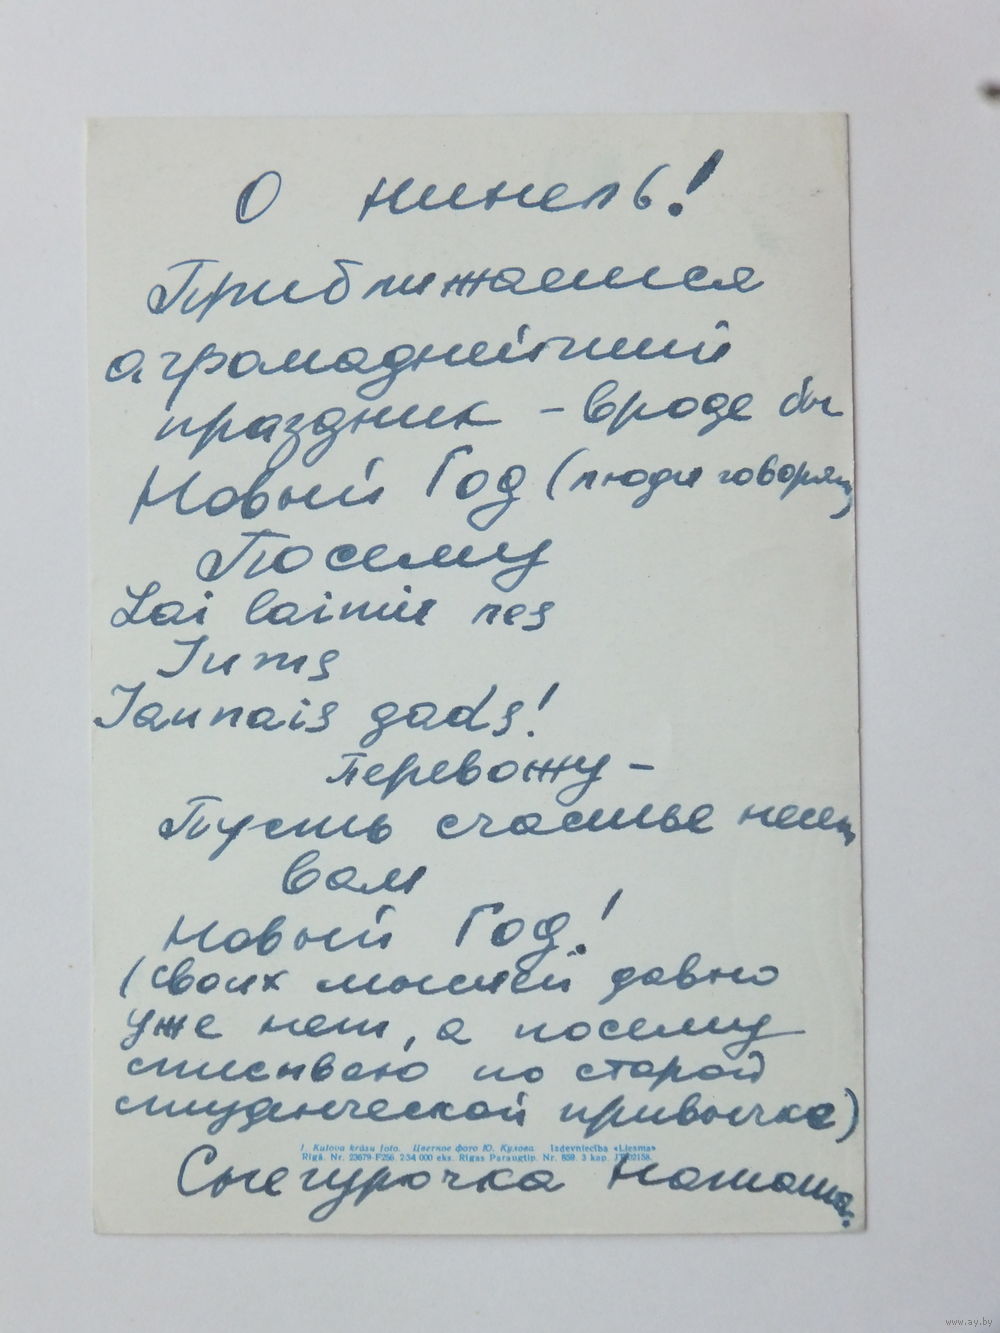 О Нинель!
Приближается
агромаднейший
праздник - вроде бы
Новый Год (люди говорят)
Посему
Lai laimu nes
Jums
Jaunais gads!
Перевожу -
Пусть счастье несет
вам
Новый Год!
(своих мыслей давно
уже нет, а посему
списываю по старой
студенческой привычке)
J. Kulova krāsu foto. Цветное фото Ю. Кулова. Izdevniecība «Liesma»
Rīgā. Nr. 23679-F256. 234 000 eks. Rīgas Paraugtip. Nr. 859. 3 kap.
Снегурочка Наташа.
www.ay.by